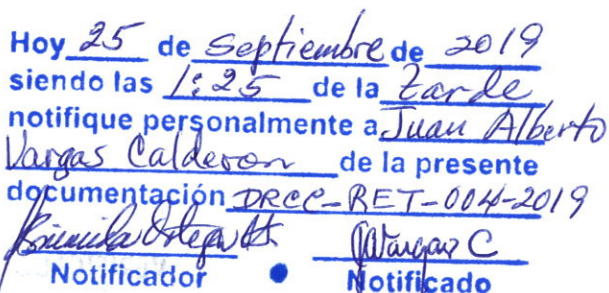 Hoy 25 de Septiembre de 2019
siendo las 1:25 de la tarde
notifique personalmente a Juan Alberto
Vargas Calderon de la presente
documentación DRCC-RET-004-2019
JAVargas C
Notificador • Notificado